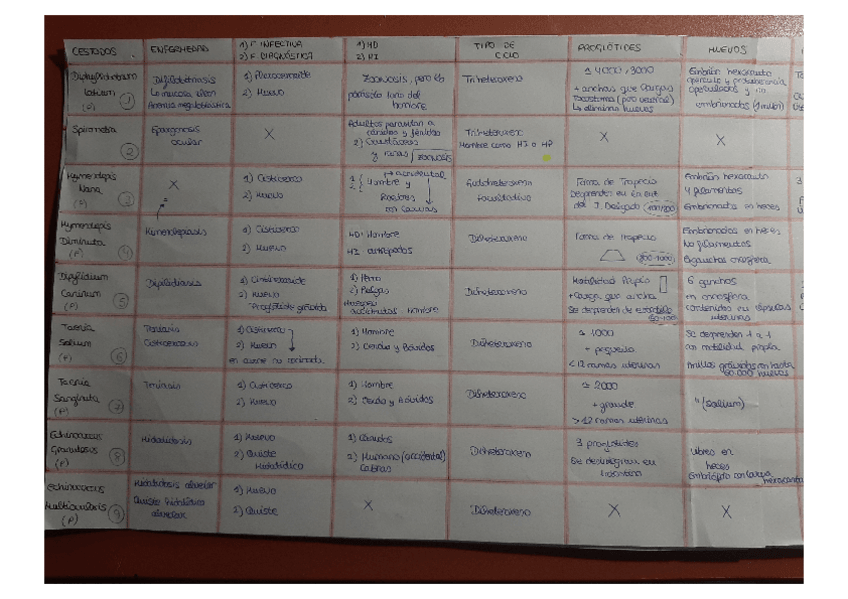 CESTODOS
ENFERMEDAD
1) F INFECTIVA
2) F DIAGNÓSTICA
1) HD
2) HI
TIPO DE
CICLO
PROGLÓTIDES
HUEVOS
Diphyllobothrium
latum
(P) 1
Difilobotriasis
La mucosa
Anemia megaloblástica
1) Plerocercoide
2) Huevo
ZOONOSIS, pero es
parásito
hombre
Triheteroxeno
± 4000, 3000
+ anchas que largas
Tocostoma (poro ventral)
↳ eliminan huevos
Embrión hexacanto
opérculo y protuberancia
operculados y no
embrionados
Spirometra
2
Esparganosis
ocular
X
Adultos parasitan a
cánidos y félidos
2) Crustáceos
y ranas ZOONOSIS
Triheteroxeno
Hombre como HI o HP
X
X
Hymenolepis
Nana
(P) 3
X
1) Cisticerco
2) Huevo
1) 2) Hombre y
accidental
Roedores
Autoheteroxeno
facultativo
Forma de Trapecio
I. Delgado
Embrión hexacanto
4 filamentos
Embrionados en heces
Hymenolepis
Diminuta
(P) 4
Himenolepiasis
1) Cisticerco
2) Huevo
HD: Hombre
HI artrópodos
Diheteroxeno
Forma de trapecio
800-1000
Embrionados en heces
No filamentos
Dipylidium
Caninum
(P) 5
Dipilidiasis
1) Cisticercoide
2) Huevo
Proglótide grávida
1) Perro
2) Pulgas
Hombre
Diheteroxeno
Motilidad Propia
+ larga que ancha
Se desprenden de estróbilo
6 ganchos
contenidos en cápsulas
uterinas
Taenia
Solium
(P) 6
Teniasis
Cisticercosis
1) Cisticerco
2) Huevo
en carne no cocinada
1) Hombre
2) Cerdo y Bóvidos
Diheteroxeno
± 1000
+ pequeña
< 12 ramas uterinas
Se desprenden 1 a 1
con motilidad propia
Anillos grávidos con hasta
60.000 huevos
Taenia
Saginata
(P) 7
Teniasis
1) Cisticerco
2) Huevo
1) Hombre
2) Cerdo y Bóvidos
Diheteroxeno
± 2000
+ grande
> 12 ramas uterinas
" (solium)
Echinococcus
Granulosus
(P) 8
Hidatidosis
1) Huevo
2) Quiste
Hidatídico
1) Cánidos
2) Humano (accidental)
Cabras
Diheteroxeno
3 proglótides
Se desintegran en
intestino
Libres en
heces
Echinococcus
Multilocularis
(P) 9
Hidatidosis alveolar
Quiste hidatídico
alveolar
1) Huevo
2) Quiste
X
Diheteroxeno
X
X